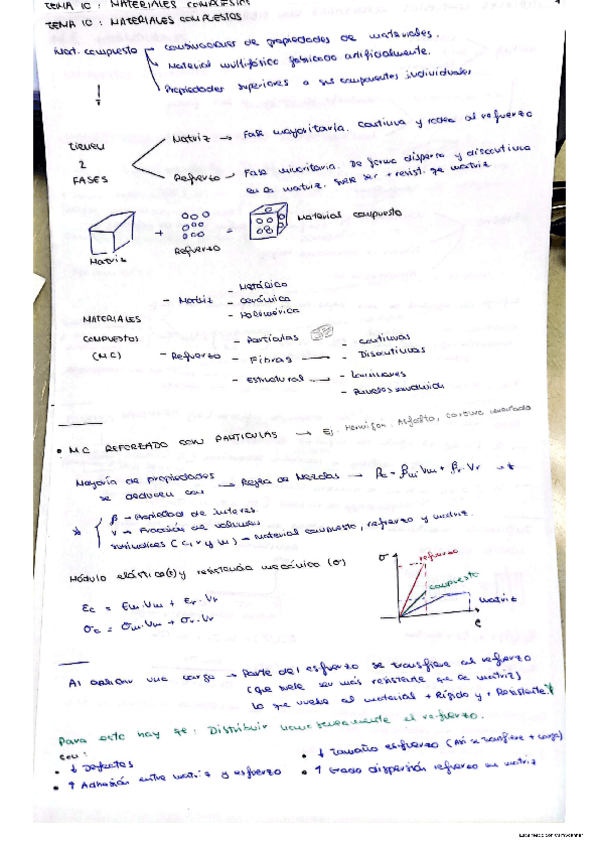 TEMA 10: MATERIALES COMPUESTOS
TEMA 10: MATERIALES COMPUESTOS
Mat. compuesto
combinaciones de propiedades de materiales.
Material multifásico fabricado artificialmente.
Propiedades superiores a sus componentes individuales
Tienen
2
FASES
Matriz → Fase mayoritaria. Continua y rodea al refuerzo
Refuerzo → Fase minoritaria. De forma dispersa y discontinua
en la matriz. Suele ser + resist. qe matriz
Matriz
+
Refuerzo
=
Material compuesto
MATERIALES
COMPUESTOS
(MC)
- Matriz
- Metálica
- Cerámica
- Polimérica
- Refuerzo
- Partículas
- Fibras
- continuas
- Discontinuas
- Estructural
- Laminares
- Paneles sandwich
• MC REFORZADO CON PARTICULAS → Ej. Hormigón. Asfalto, carburo
Mayoría de propiedades
se deducen con
→ Regla de Mezclas → βc = βm·Vm + βr·Vr *
* β → Propiedad de interes.
V → Fracción de volumen
subíndices (c, r y m) → material compuesto, refuerzo y matriz.
Módulo elástico(ε) y resistencia mecánica (σ)
εc = εm·Vm + εr·Vr
σc = σm·Vm + σr·Vr
σ
refuerzo
compuesto
matriz
Al aplicar una carga → Parte del esfuerzo se transfiere al refuerzo
(que suele ser más resistente que la matriz)
Lo que vuelve al material + Rígido y + Resistente
Para esto hay qe: Distribuir el refuerzo.
con:
• ↓ Defectos
• ↑ Adhesión entre matriz y esfuerzo
• ↓ Tamaño esfuerzo (Así se transfiere + carga)
• ↑ Grado dispersión refuerzo en matriz